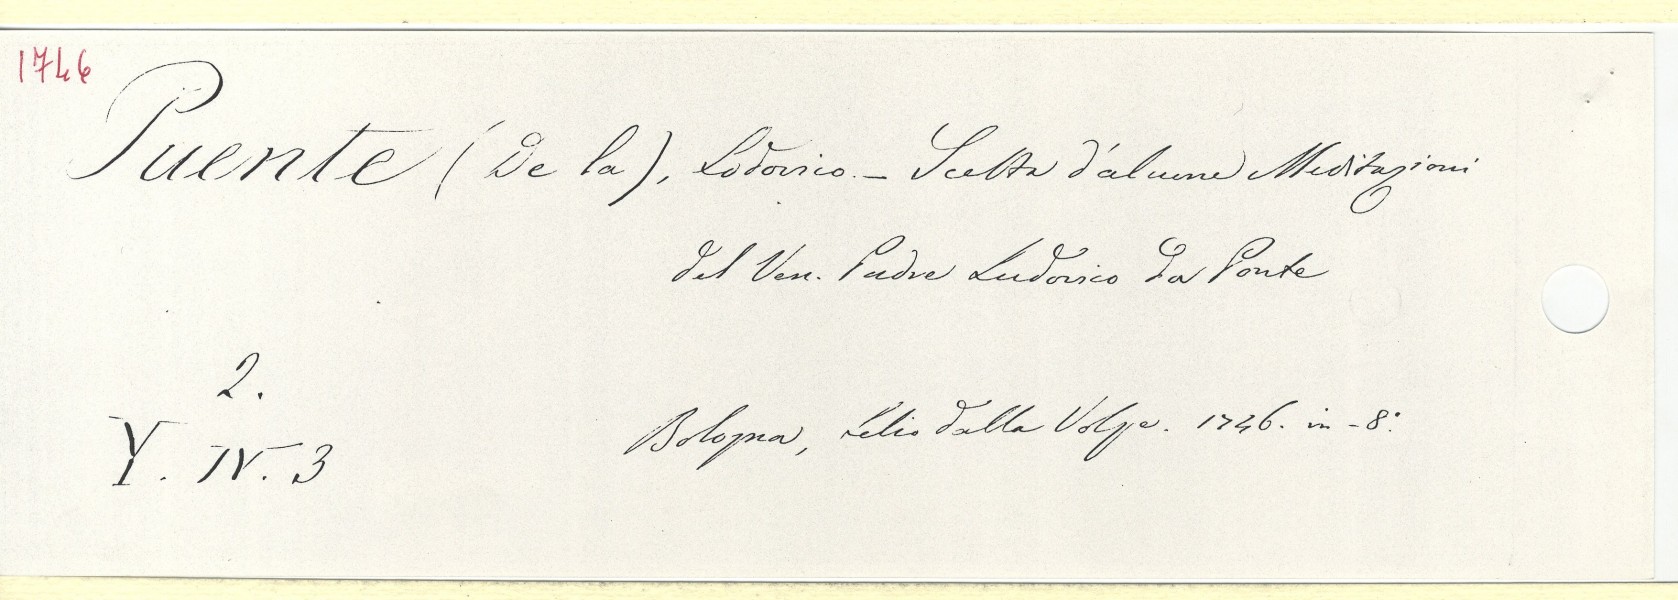 1746
Puente (De la), Lodovico. - Scelta d'alcune Meditazioni
del Ven. Padre Ludovico Da Ponte
2.
Y. IV. 3
Bologna, Lelio dalla Volpe. 1746. in - 8: